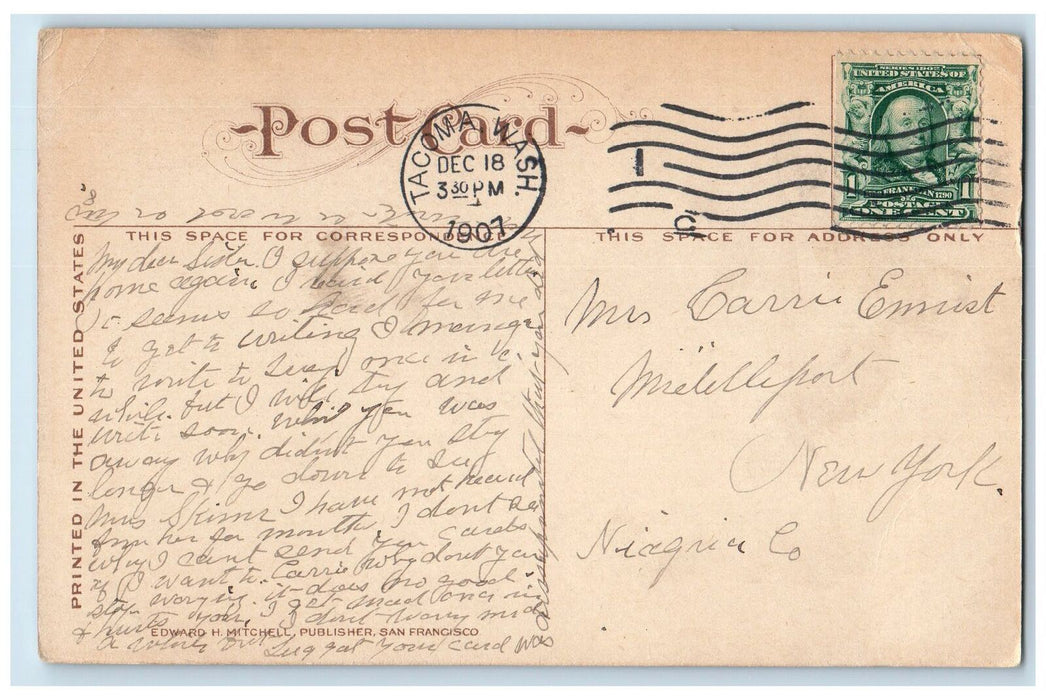 Post Card
TACOMA, WASH.
DEC 18
3 30 PM
1907
1
SERIES 1902
UNITED STATES OF
AMERICA
1 FRANKLIN 1790 1
POSTAGE
ONE CENT
THIS SPACE FOR CORRESPONDENCE
THIS SPACE FOR ADDRESS ONLY
PRINTED IN THE UNITED STATES
My dear Sister. I suppose you are
home again, I recd your letter
it seems so hard for me
to get to writing I manage
to write to once in a
while. but I will try and
write soon. when you was
away why didnt you stay
longer & go down to see
Mrs I have not heard
from her for months I dont see
why I cant send you cards
if I want to. Carrie why dont you
stop worying it does no good
& hurts you, I get mad once in
a while but I dont worry
EDWARD H. MITCHELL, PUBLISHER, SAN FRANCISCO
your card was
Mrs Carrie Ennist
Middleport
New York.
Niagria Co